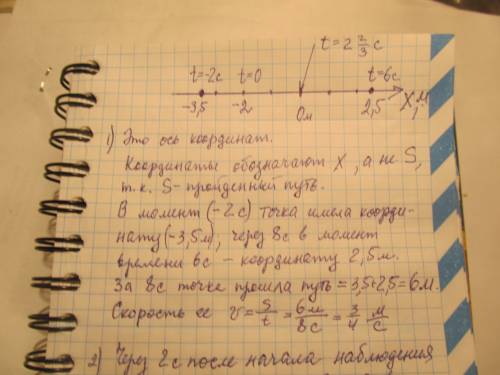 t = 2 2/3 c
t=-2c t=0 t=6c
-3,5 -2 0м 2,5 X,м
1) Это ось координат.
Координаты обозначают X, а не S,
т.к. S- пройденный путь.
В момент (-2c) точка имела коорди-
нату (-3,5м), через 8с в момент
времени 6с - координату 2,5м.
За 8с точка прошла путь = 3,5+2,5=6м.
Скорость ее v = S/t = 6м/8с = 3/4 м/с
2) Через 2с после начала наблюдения